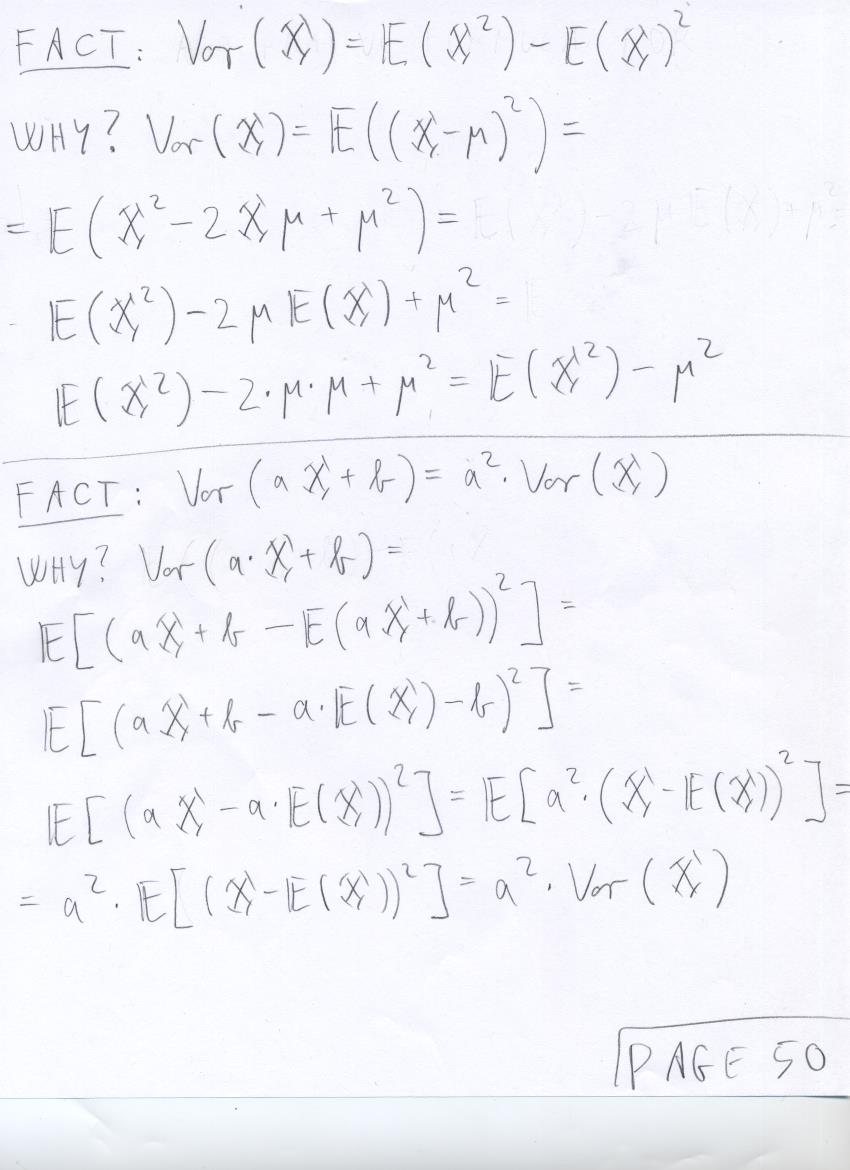 FACT: Var(X) = E(X²) - E(X)²
WHY? Var(X) = E((X-μ)²) =
= E(X² - 2Xμ + μ²) =
E(X²) - 2μE(X) + μ² =
E(X²) - 2·μ·μ + μ² = E(X²) - μ²
FACT: Var(aX + b) = a²·Var(X)
WHY? Var(a·X + b) =
E[(aX + b - E(aX + b))²] =
E[(aX + b - a·E(X) - b)²] =
E[(aX - a·E(X))²] = E[a²·(X - E(X))²] =
= a²·E[(X - E(X))²] = a²·Var(X)
PAGE 50